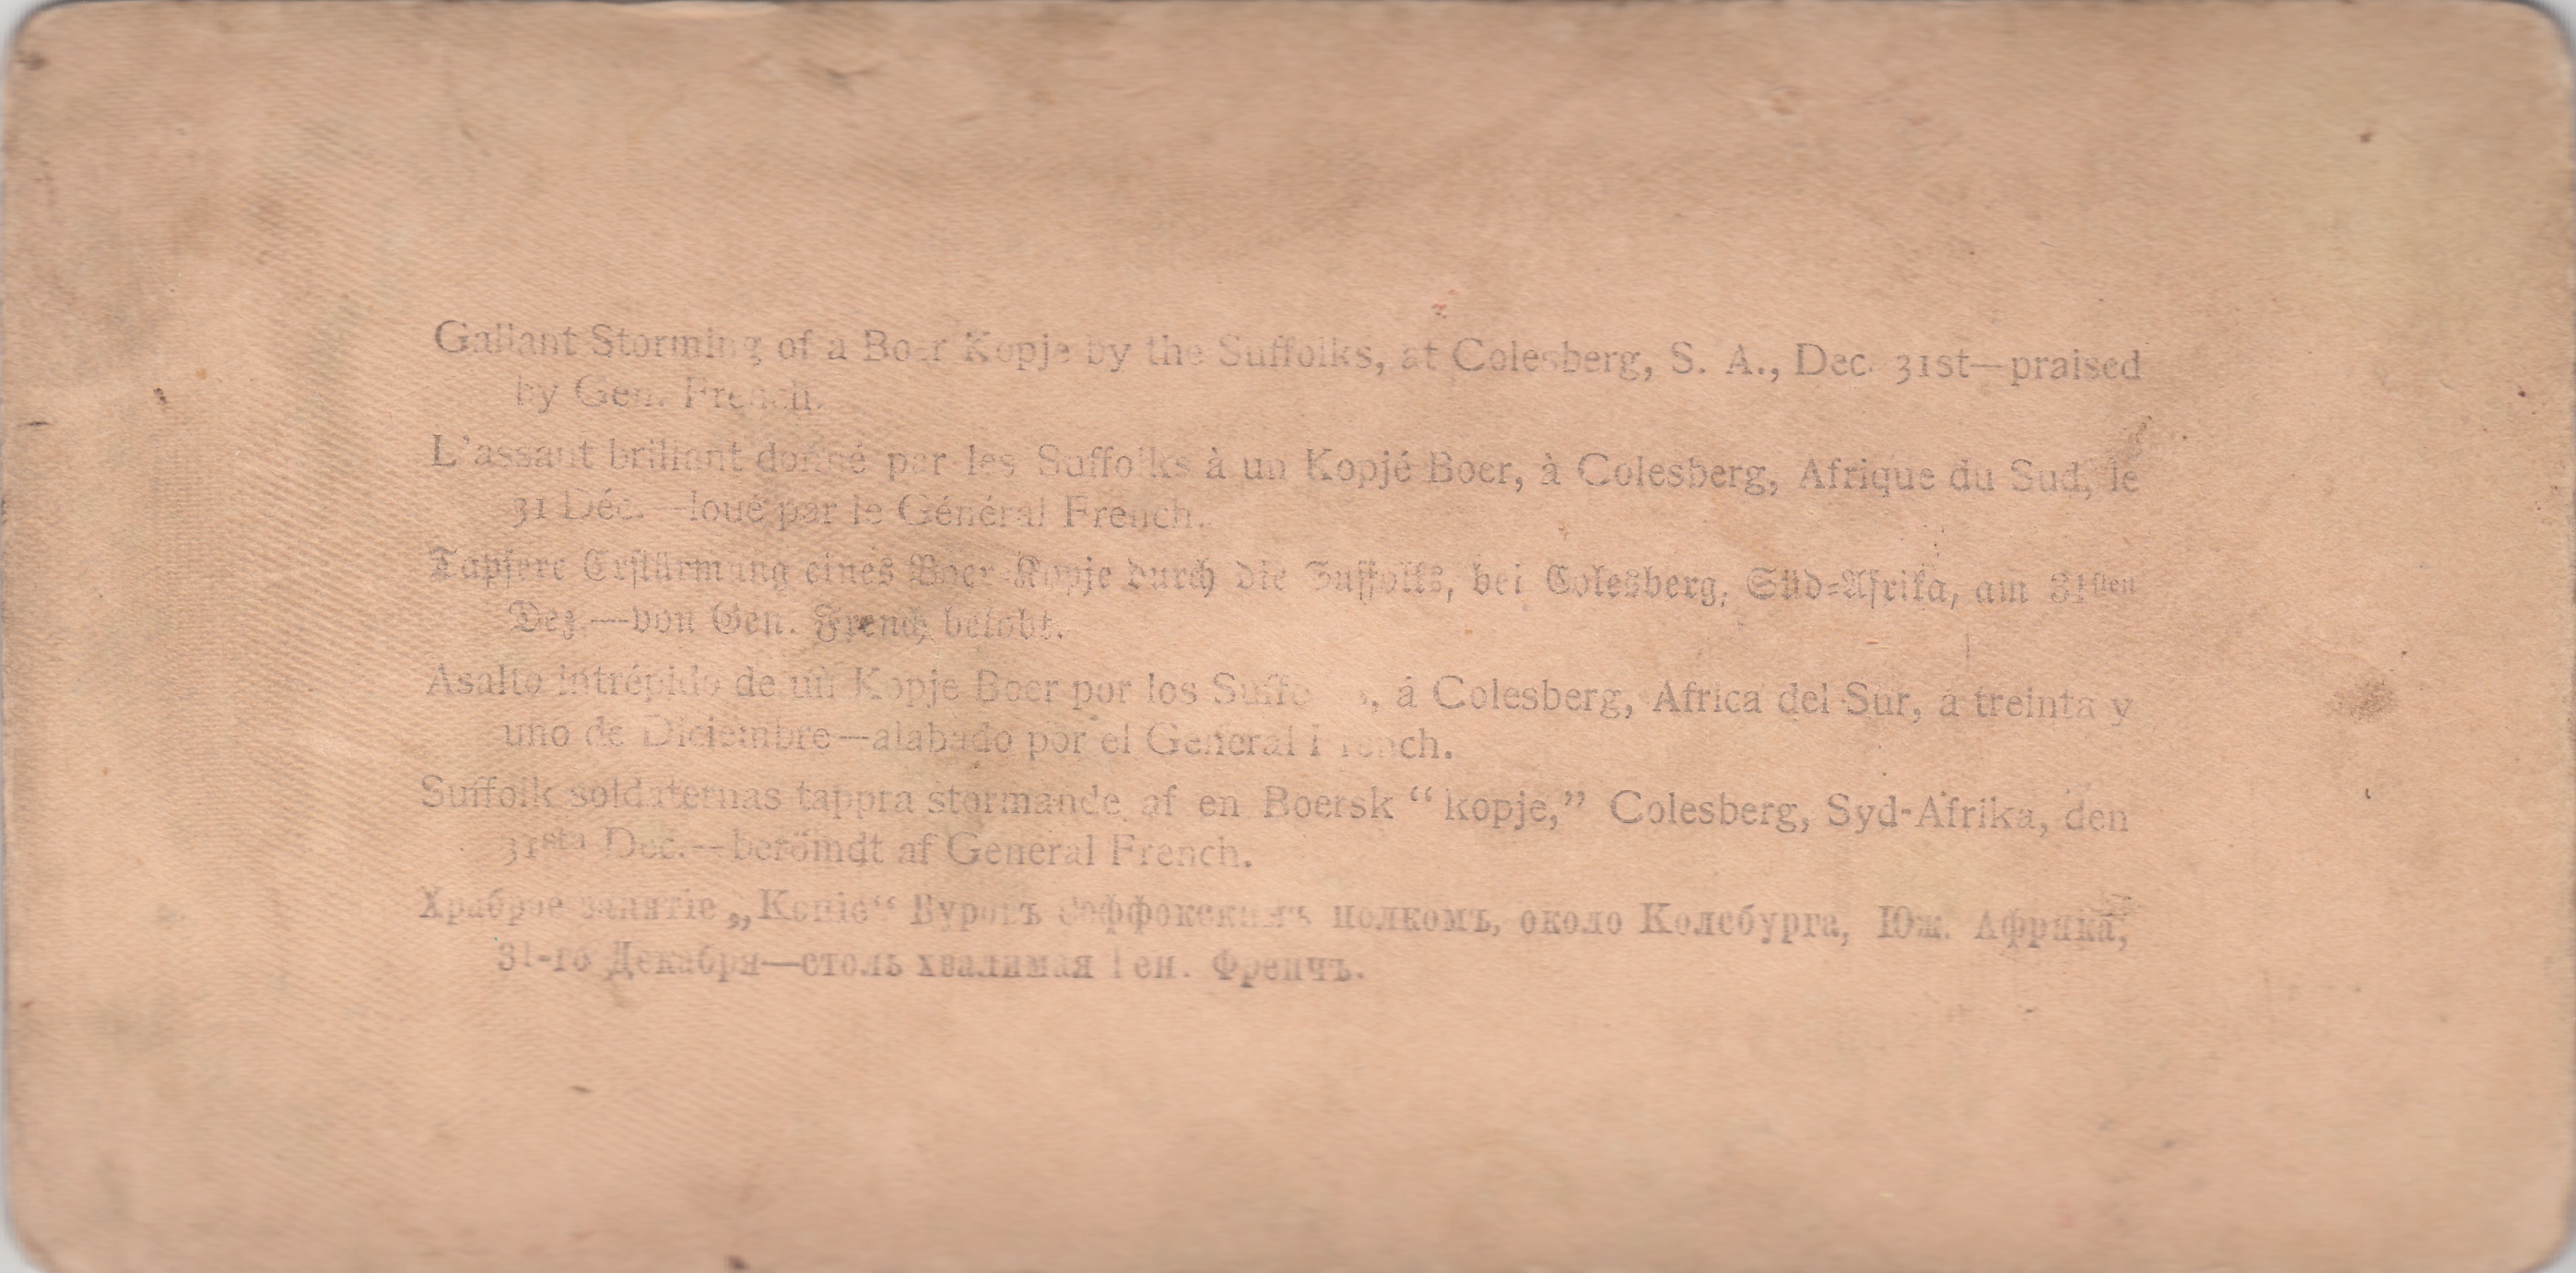 Gallant Storming of a Boer Kopje by the Suffolks, at Colesberg, S. A., Dec. 31st—praised
by Gen. French.
L'assaut brillant donné par les Suffolks à un Kopjé Boer, à Colesberg, Afrique du Sud, le
31 Déc.—loué par le Général French.
Tapfere Erstürmung eines Boer Kopje durch die Suffolks, bei Colesberg, Süd-Afrika, am 31sten
Dez.—von Gen. French belobt.
Asalto intrépido de un Kopje Boer por los á Colesberg, Africa del Sur, á treinta y
uno de Diciembre—alabado por el General French.
Suffolk soldaternas tappra stormande af en Boersk “kopje,” Colesberg, Syd-Afrika, den
31sta Dec.—berömdt af General French.
Храброе занятіе „Копіе“ Буровъ полкомъ, около Колсбурга, Юж. Африка,
31-го Декабря—столь хвалимая Ген. Френчъ.